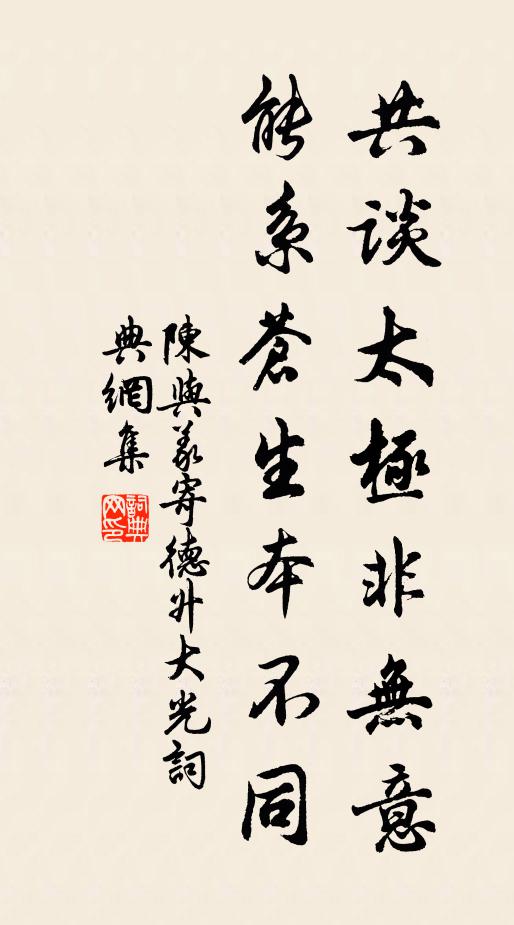 共談太極非無意
能系蒼生本不同
陳與義寄德升大光詞
典網集
詞典網印